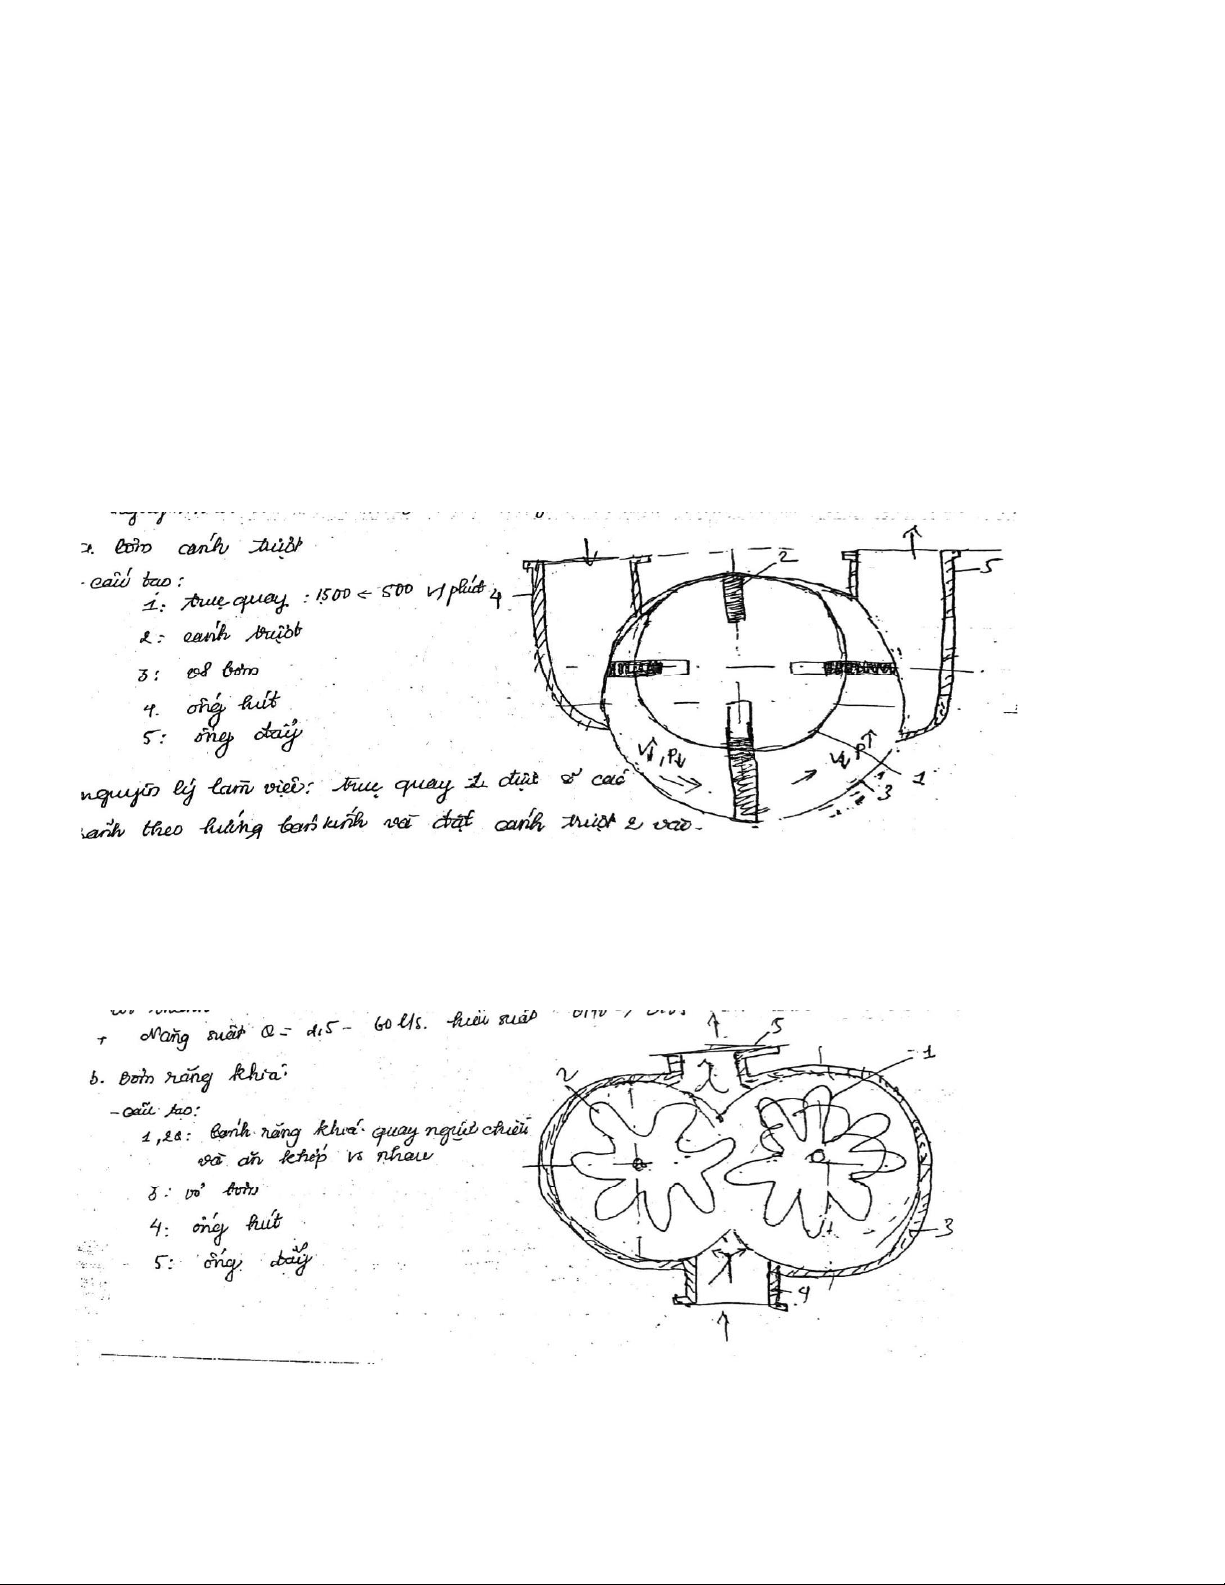 a. bơm cánh trượt
- cấu tạo:
1: trục quay : 1500 ÷ 500 v/phút
2: cánh trượt
3: vỏ bơm
4. ống hút
5: ống đẩy
nguyên lý làm việc: trục quay 1 được xẻ các
rãnh theo hướng bán kính và đặt cánh trượt 2 vào.
2
4
5
V↑, P↓
V↓ P↑
1
3
+ Năng suất Q = 2,5 - 60 l/s. hiệu suất
b. Bơm răng khía:
- cấu tạo:
1, 2: bánh răng khía quay ngược chiều
và ăn khớp vs nhau
3: vỏ bơm
4: ống hút
5: ống đẩy
5
1
2
3
4